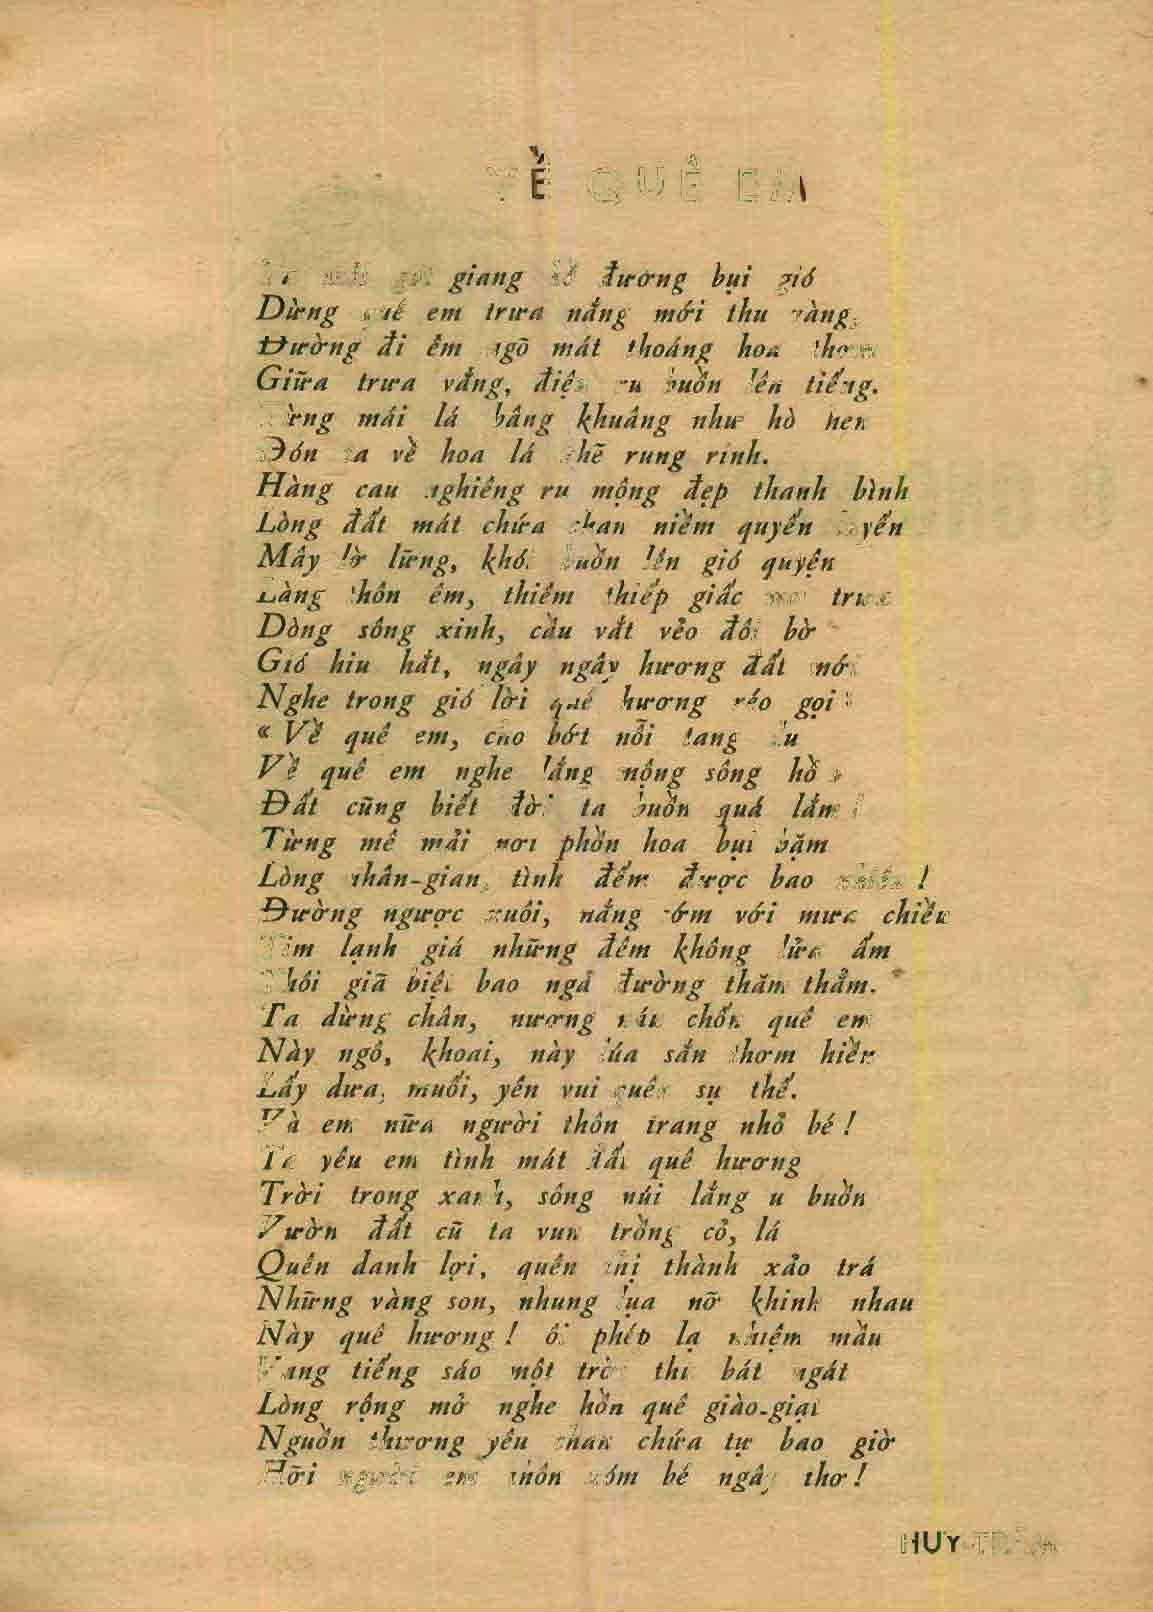 VỀ QUÊ EM
giang hồ đường bụi gió
Dừng quê em trưa nắng mới thu vàng,
Đường đi êm ngõ mát thoáng hoa thơm
Giữa trưa vắng, điệu ru buồn lên tiếng.
Từng mái lá bâng khuâng như hò hẹn
Đón ta về hoa lá khẽ rung rinh.
Hàng cau nghiêng ru mộng đẹp thanh bình
Lòng đất mát chứa chan niềm quyến luyến
Mây lờ lững, khói buồn lên gió quyện
Làng thôn êm, thiêm thiếp giấc trưa
Dòng sông xinh, cầu vắt vẻo đôi bờ
Gió hiu hắt, ngây ngây hương đất mới
Nghe trong gió lời quê hương réo gọi :
« Về quê em, cho bớt nỗi lang
Về quê em nghe lắng mộng sông hồ »
Đất cũng biết đời ta buồn quá lắm !
Từng mê mải nơi phồn hoa bụi bặm
Lòng nhân-gian, tình đếm được bao nhiêu !
Đường ngược xuôi, nắng sớm với mưa chiều
Tim lạnh giá những đêm không lửa ấm
Thôi giã biệt bao ngả đường thăm thẳm.
Ta dừng chân, nương náu chốn quê em
Này ngô, khoai, này lúa sắn thơm hiền
Lấy dưa, muối, yên vui quên sự thế.
Và em nữa người thôn trang nhỏ bé !
Ta yêu em tình mát đất quê hương
Trời trong xanh, sông núi lắng u buồn
Vườn đất cũ ta vun trồng cỏ, lá
Quên danh lợi, quên thị thành xảo trá
Những vàng son, nhung lụa nỡ khinh nhau
Này quê hương ! ôi phép lạ nhiệm mầu
Vang tiếng sáo một trời thu bát ngát
Lòng rộng mở nghe hồn quê giào-giạt
Nguồn thương yêu chan chứa tự bao giờ
Hỡi người em thôn xóm bé ngây thơ !
HUY